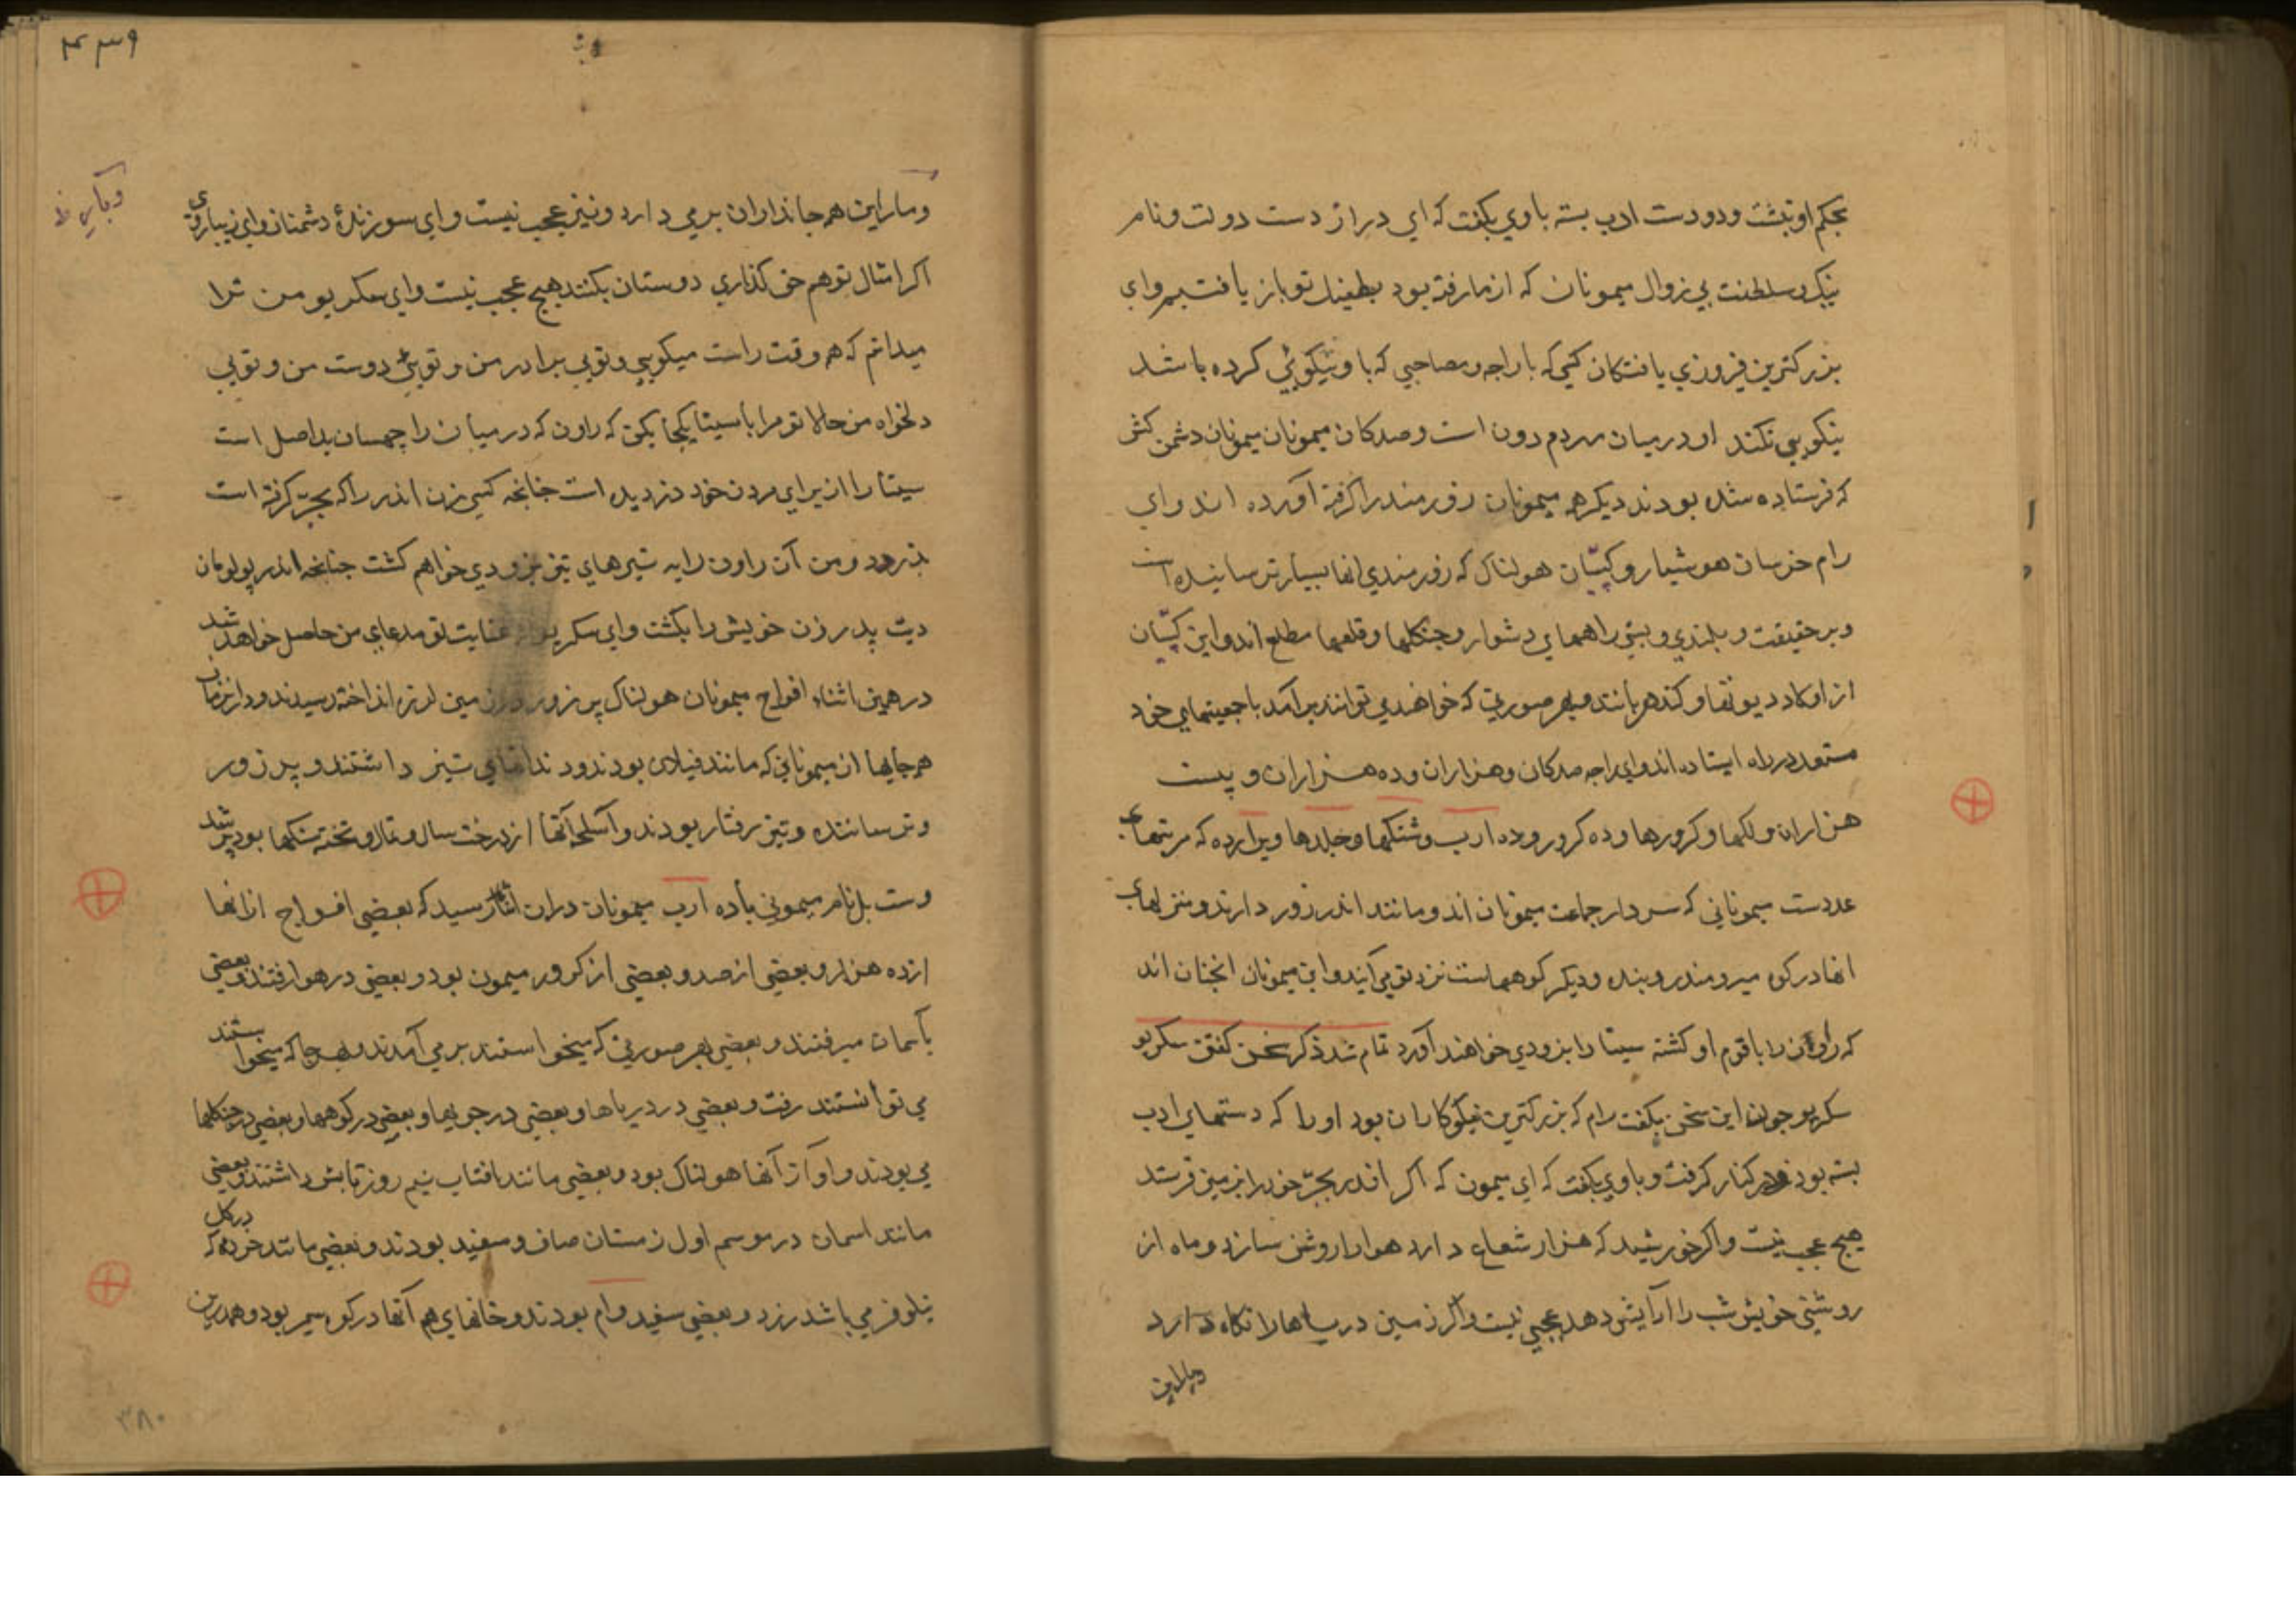 بحکم او نبشت و دو دست ادب بسته با وی بکفت که ای دراز دست دولت و نام
نیک و سلطنت بی زوال میمونان که از ما رفته بود بطفیل تو باز یافتیم و ای
بزرکترین فیروزی یافتکان کسی که با راجه و مصاحبی که با او نیکوئی کرده باشد
نیکویی نکند او در میان مردم دون است و صدکان میمونان میمونان دشمن کش
که فرستاده شده بودند دیکر همه میمونان زورمند را کرفته آورده اند و ای
رام خرسان هوشیار و کپیان هولناک که زورمندی انها بسیار ترساینده است
و بر حقیقت و بلندی و پستی راههای دشوار و جنکلها و قلعها مطلع اند و این کپیان
از اولاد دیوتها و کندهربانند و بهر صورتی که خواهند می توانند برآمد با جمعیتهای خود
مستعد در راه ایستاده اند و ای راجه صدکان و هزاران و ده هزاران و بیست
هزاران و لکها و کرورها و ده کرور و ده ارب و شنکها و جلدها و پرارده که مرتبهای
عددست میمونانی که سردار جماعت میمونان اند و مانند اندر زور دارند و منزلهای
انها در کوه میرو مندر و بنده و دیکر کوههاست نزد تو می آیند و این میمونان انچنان اند
که راون را با قوم او کشته سیتا را بزودی خواهند آورد تمام شد ذکر سخن کفتن سکریو
سکریو چون این سخن بکفت رام که بزرکترین نیکوکاران بود او را که دستهای ادب
بسته بود در کنار کرفت و با وی بکفت که ای میمون که اکر اندر بجر خود را بر زمین فرستد
هیچ عجب نیست و اکر خورشید که هزار شعاع دارد هوا را روشن سازد و ماه از
روشنی خویش شب را آرایش دهد عجبی نیست و اکر زمین دریاها را نکاه دارد
و بار این
۴۳۹
و بار این همه جانداران بر می دارد و نیز عجب نیست و ای سوزندهٔ دشمنان و ای زیبا روی
اکر امثال تو هم حق کذاری دوستان بکنند هیچ عجب نیست و ای سکریو من ترا
میدانم که هر وقت راست میکویی و تویی برادر من و تویئی دوست من و تویی
دلخواه من حالا تو مرا با سیتا یکجا بکن که راون که در میان راچهسان بداصل است
سیتا را از برای مردن خود دزدیده است چنانچه کسی زن اندر را که بجر کرفته است
بدزدد و من آن راون را به تیرهای تیز بزودی خواهم کشت چنانچه اندر پولومان
دیت پدر زن خویش را بکشت و ای سکریو از عنایت تو مدعای من حاصل خواهد شد
در همین اثناء افواج میمونان هولناک پر زور در زمین لرزه انداخته رسیدند و دران زمان
همه جایها از میمونانی که مانند فیلان بودند و دندانهای تیز داشتند و پر زور
و ترساننده و تیز رفتار بودند و اسلحه آنها از درخت سال و تال و تخته سنکها بود پر شد
وست بل نام میمونی با ده ارب میمونان دران اثنا رسید که بعضی افواج از انها
از ده هزار و بعضی از صد و بعضی از کرور میمون بود و بعضی در هوا رفتند و بعضی
بآسمان میرفتند و بعضی بهر صورتی که میخواستند بر می آمدند و بهر جا که میخواستند
می توانستند رفت و بعضی در دریاها و بعضی در جویها و بعضی در کوهها و بعضی در جنکلها
می بودند و آواز آنها هولناک بود و بعضی مانند افتاب نیم روز تابش داشتند و بعضی
مانند اسمان در موسم اول زمستان صاف و سفید بودند و بعضی مانند خرده که در کل
نیلوفر می باشد زرد و بعضی سفید وام بودند و خانهای هم آنها در کوه سیمر بود و همدرین
۳۸۰